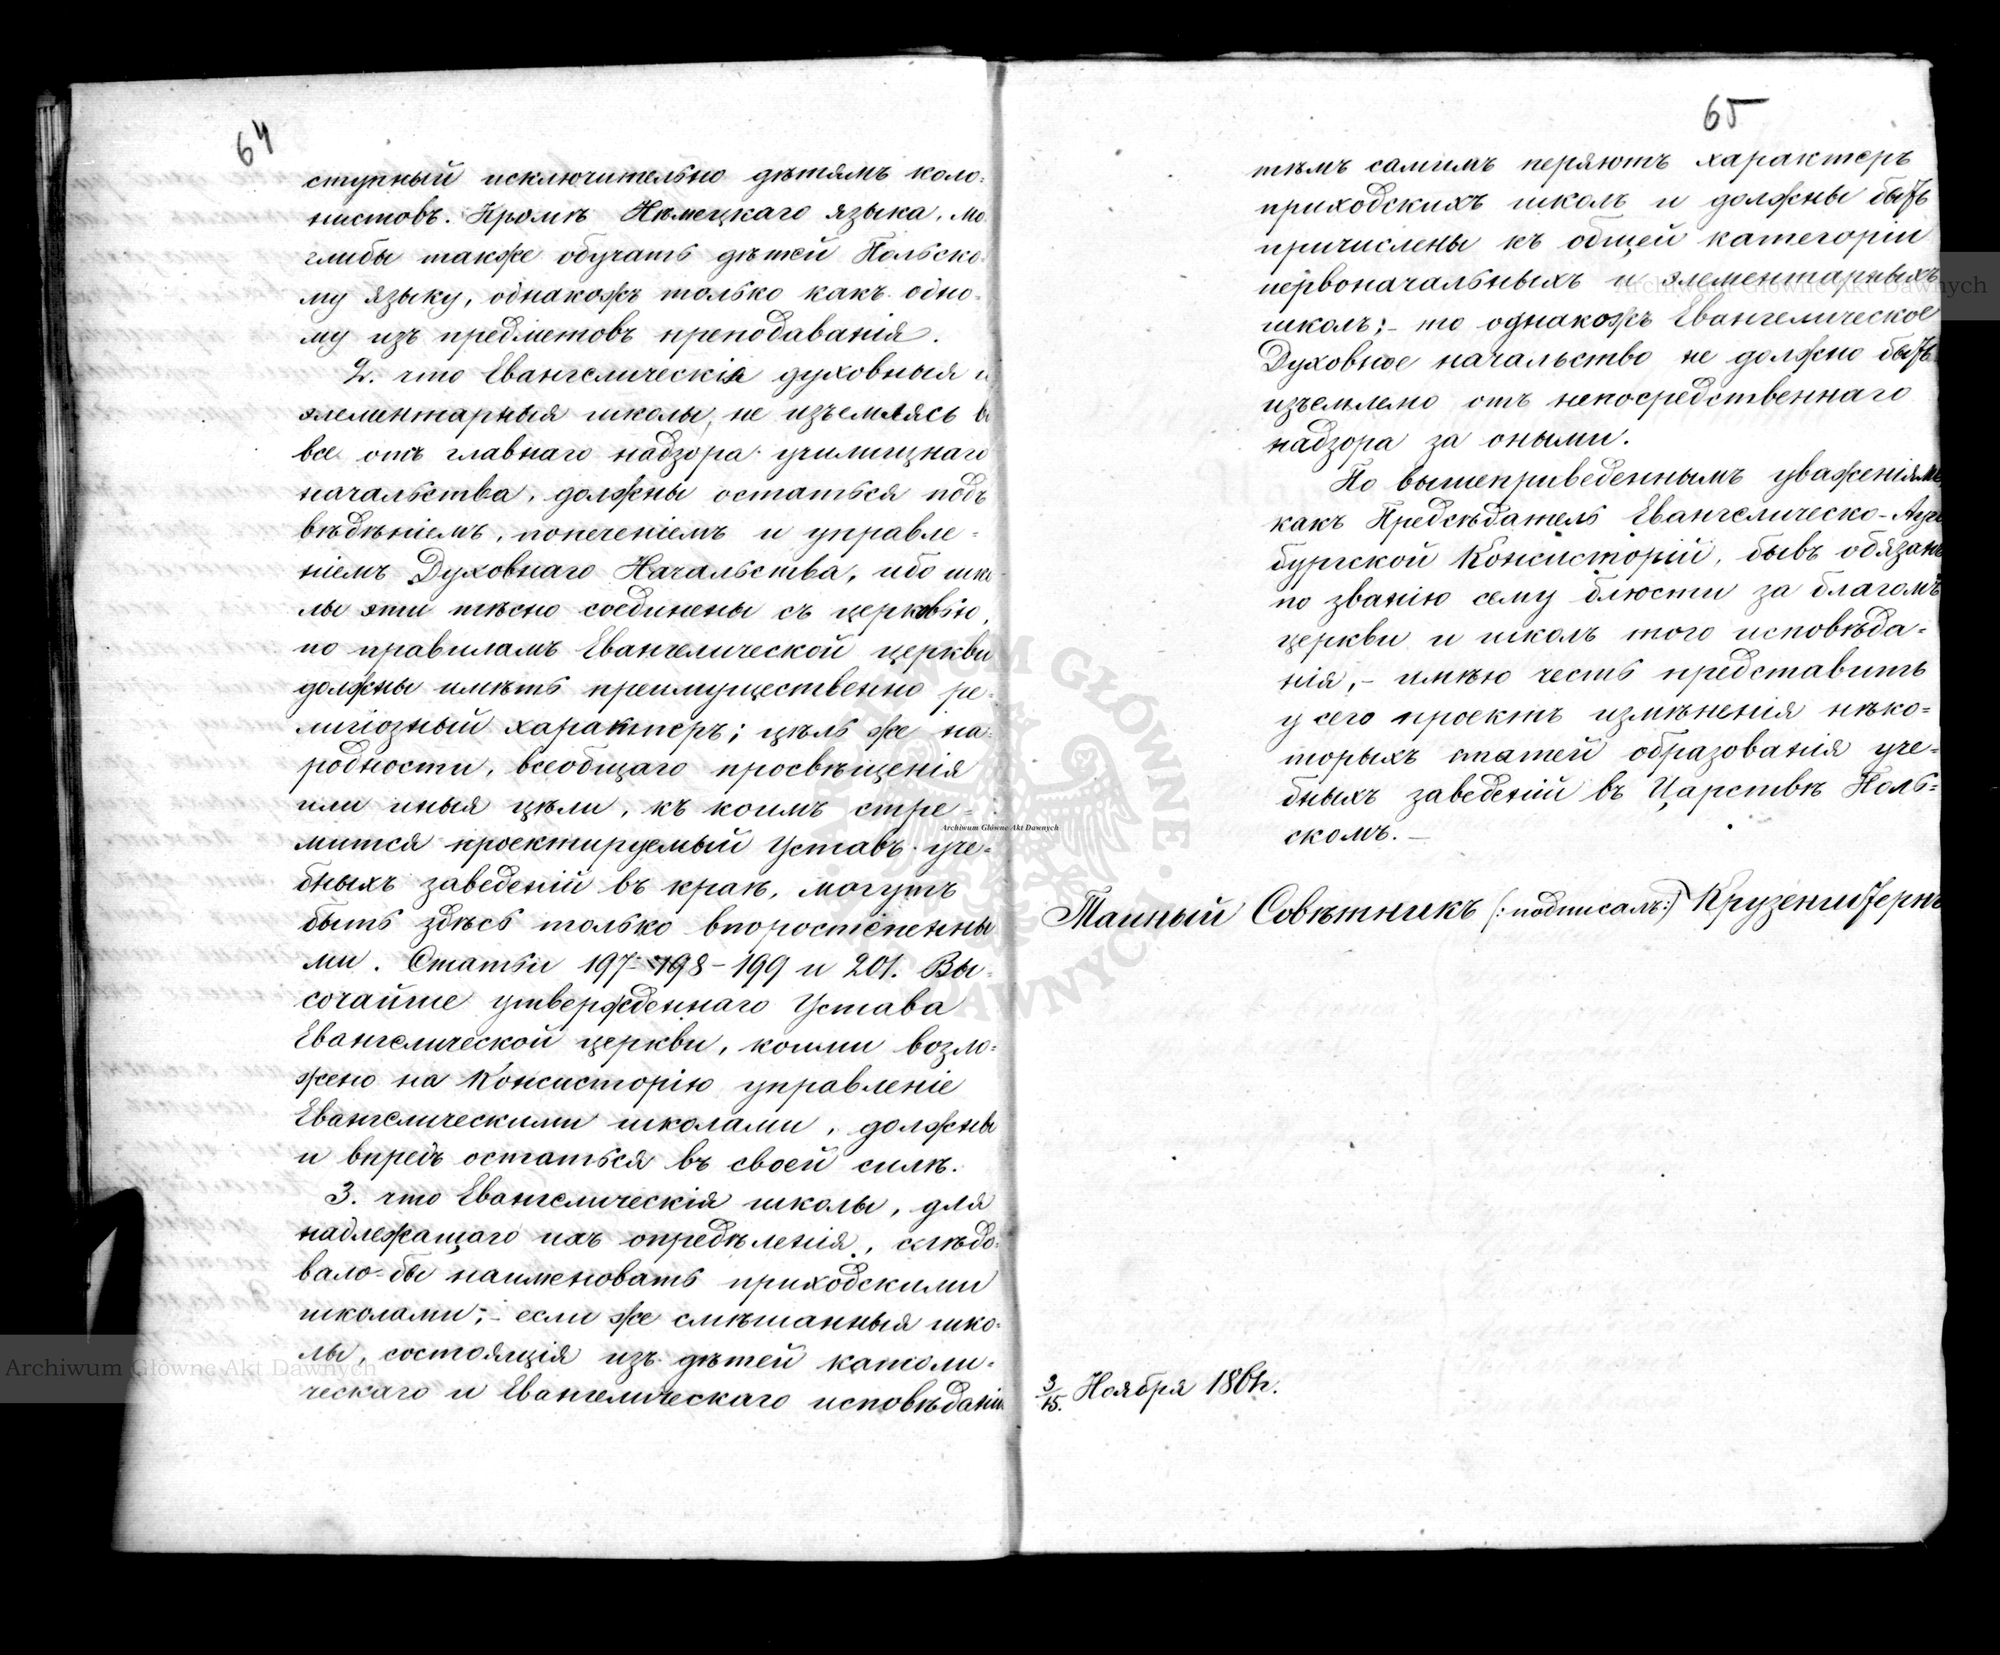 64
ступный исключительно дѣтямъ коло-
нистовъ. Кромѣ Нѣмецкаго языка, мо
глибы также обучать дѣтей Польско-
му языку, однакожъ только какъ одно-
му изъ предметовъ преподаванія.
2. что Евангелическія духовныя и
элементарныя школы, не изъемлясь во
все отъ главнаго надзора училищнаго
начальства, должны остаться подъ
вѣдѣніемъ, попеченіемъ и управле-
ніемъ Духовнаго Начальства, ибо шко-
лы эти тѣсно соединены съ церковію,
по правиламъ Евангелической церкви
должны имѣть преимущественно ре-
лигіозный характеръ; цѣль же на-
родности, всеобщаго просвѣщенія
или иныя цѣли, къ коимъ стре-
мится проектируемый Уставъ уче-
бныхъ заведеній въ краѣ, могутъ
быть здѣсь только второстепенны
ми. Статьи 197-198-199 и 201. Вы-
сочайше утвержденнаго Устава
Евангелической церкви, коими возло-
жено на Консисторію управленіе
Евангелическими школами, должны
и впредь остаться въ своей силѣ.
3. что Евангелическія школы, для
надлежащаго ихъ опредѣленія, слѣдо-
вало-бы наименовать приходскими
школами;- если же смѣшанныя шко-
лы, состоящія изъ дѣтей католи-
ческаго и Евангелическаго исповѣданія
65
тѣмъ самимъ теряютъ характеръ
приходскихъ школъ и должны быть
причислены къ общей категоріи
первоначальныхъ и элементарныхъ
школъ;- то однакожъ Евангелическое
Духовное начальство не должно быть
изъемлемо отъ непосредственнаго
надзора за оными.
По вышеприведеннымъ уваженіямъ,
какъ Предсѣдатель Евангелическо-Аугс
бургской Консисторіи, бывъ обязанъ
по званію сему блюсти за благомъ
церкви и школъ того исповѣда-
нія,- имѣю честь представить
у сего проектъ измѣненія нѣко-
торыхъ статей образованія уче-
бныхъ заведеній въ Царствѣ Поль-
скомъ.-
Тайный Совѣтникъ (:подписалъ:) Крузенштернъ
3/15. Ноября 1861г.
Archiwum Główne Akt Dawnych
Archiwum Główne Akt Dawnych
Archiwum Główne Akt Dawnych
ARCHIWUM GŁÓWNE AKT DAWNYCH